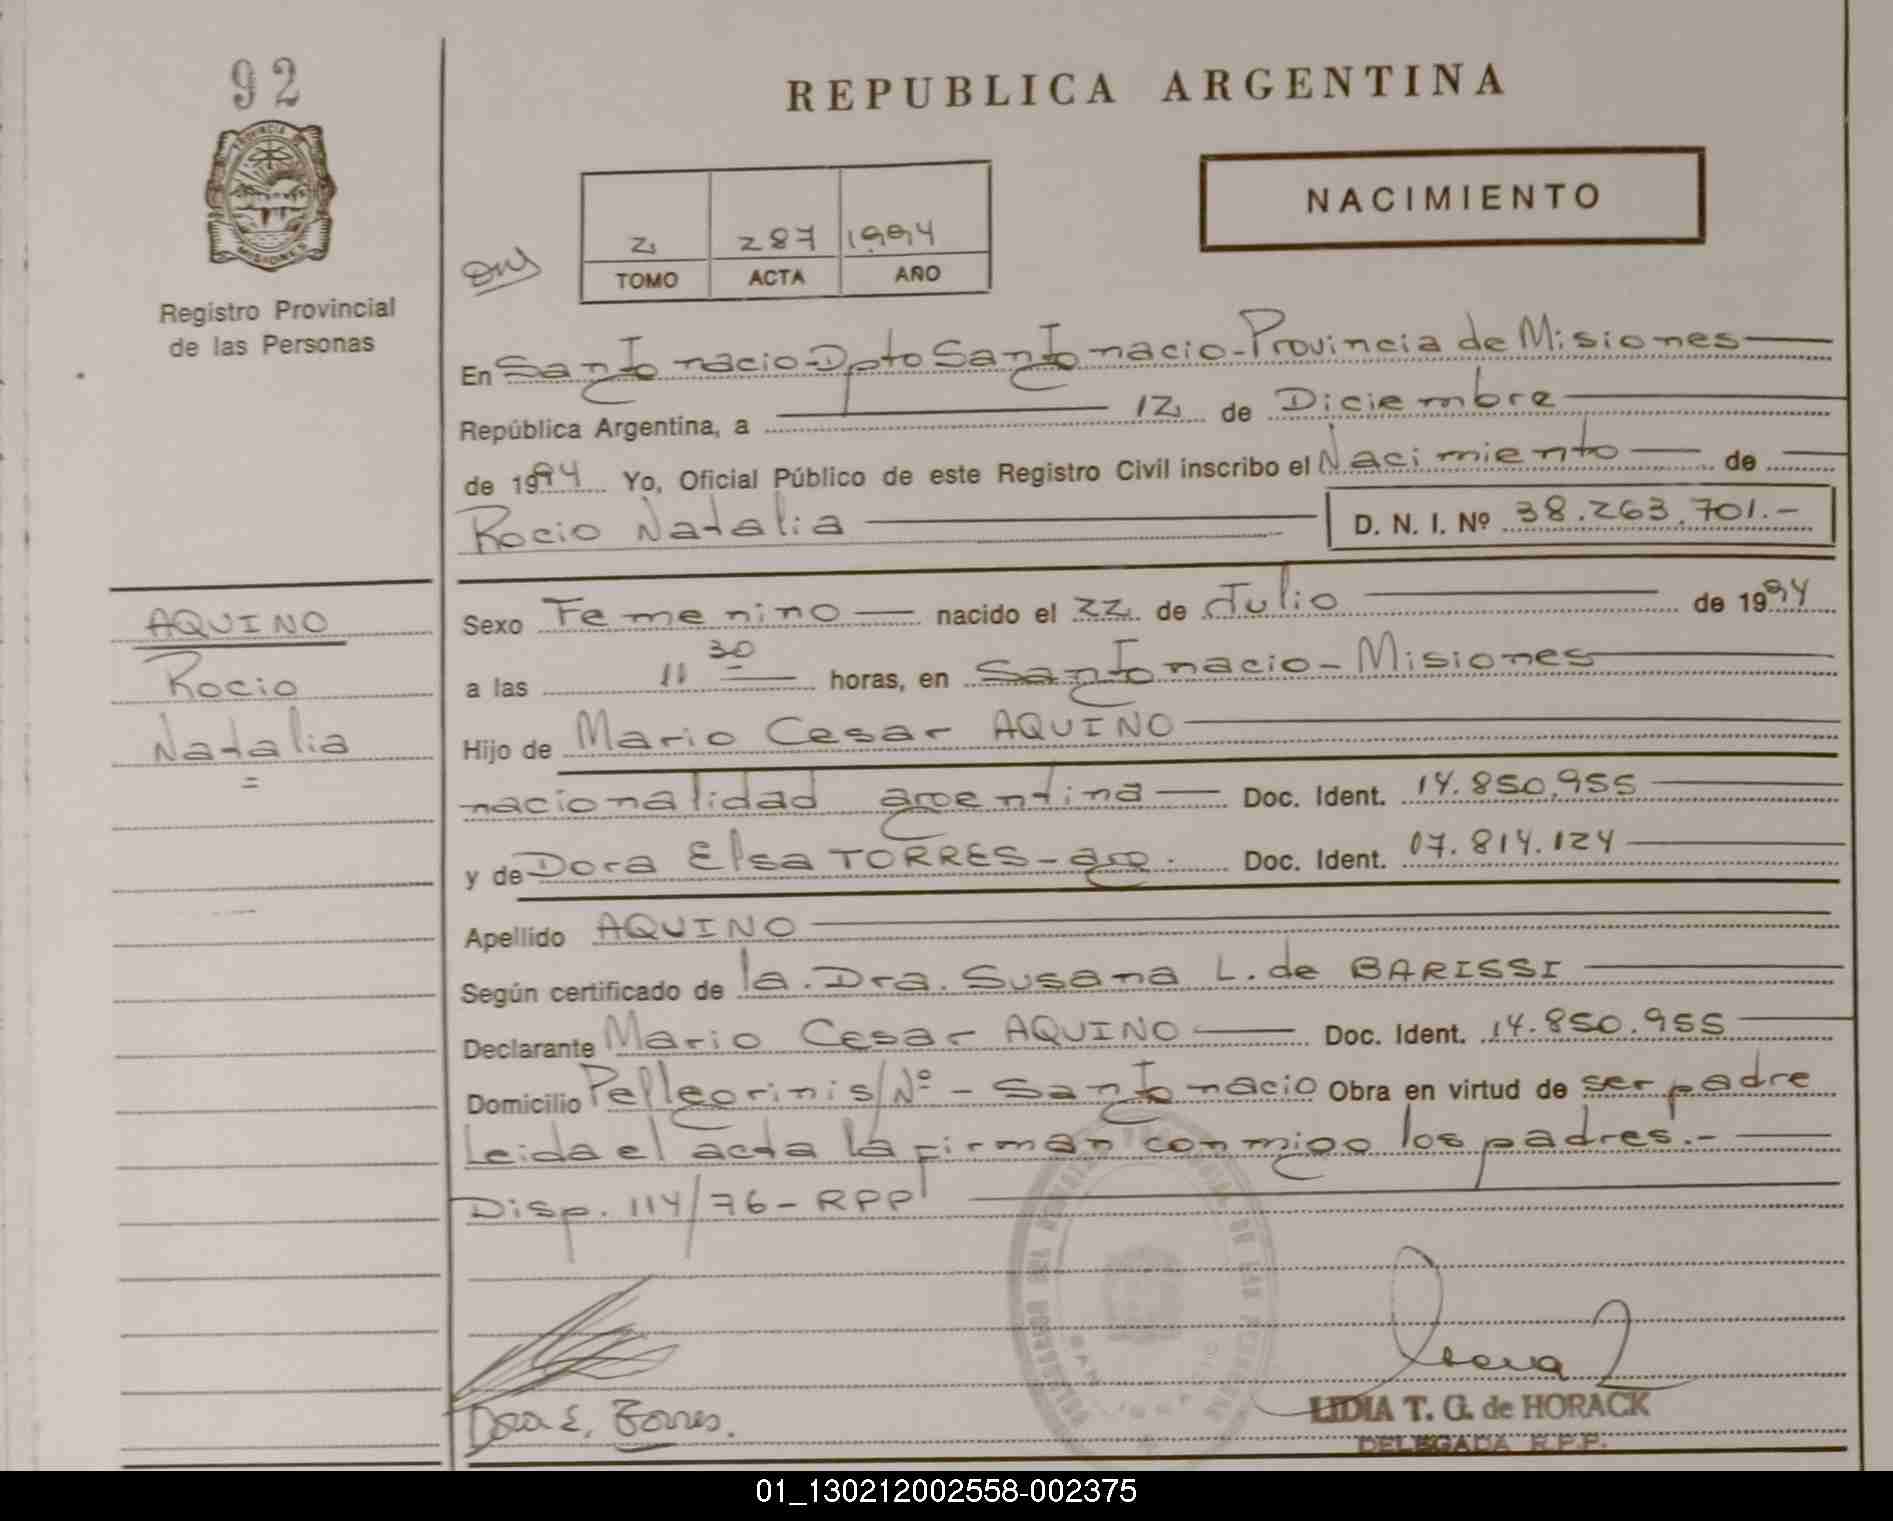 92
REPUBLICA ARGENTINA
NACIMIENTO
2 287 1994
TOMO ACTA AÑO
Registro Provincial
de las Personas
En San Ignacio - Dpto San Ignacio - Provincia de Misiones
República Argentina, a 12 de Diciembre
de 1994 Yo, Oficial Público de este Registro Civil inscribo el Nacimiento de
Rocio Natalia D. N. I. Nº 38.263.701.-
AQUINO
Rocio
Natalia
Sexo Femenino nacido el 22 de Julio de 1994
a las 11 30 horas, en San Ignacio - Misiones
Hijo de Mario Cesar AQUINO
nacionalidad argentina Doc. Ident. 14.850.955
y de Dora Elsa TORRES - arg. Doc. Ident. 07.814.124
Apellido AQUINO
Según certificado de la. Dra. Susana L. de BARISSI
Declarante Mario Cesar AQUINO Doc. Ident. 14.850.955
Domicilio Pellegrini s/Nº - San Ignacio Obra en virtud de ser padre
Leida el acta la firman conmigo los padres.-
Disp. 114/76 - RPP
Dora E. Torres.
LIDIA T. G. de HORACK
DELEGADA R.P.P.
01_130212002558-002375